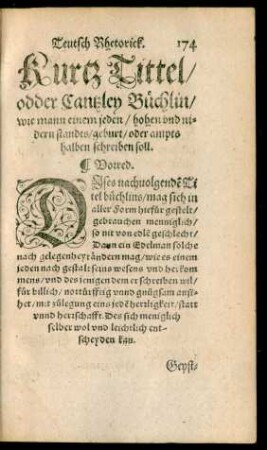 Teutsch Rhetorick. 174
Kurtz Tittel/
odder Cantzley Büchlin/
wie mann einem jeden/ hohen vnd ni-
dern standts/geburt/oder ampts
halben schreiben soll.
¶ Vorred.
DIses nachuolgendẽ Ti
tel büchlins/mag sich in
aller Form hiefür gestelt/
gebrauchen menniglich/
so nit von edlẽ geschlecht/
Dann ein Edelman solche
nach gelegenheyt ändern mag/wie es einem
jeden nach gestalt seins wesens vnd herkom
mens/vnd des jenigen dem er schreiben wil/
für billich/ notturfftig vnnd gnůgsam ansi-
het/mit zůlegung eins jedẽ herrligkeit/statt
vnnd herrschafft. Des sich meniglich
selber wol vnd leichtlich ent-
scheyden kan.
Geyst-